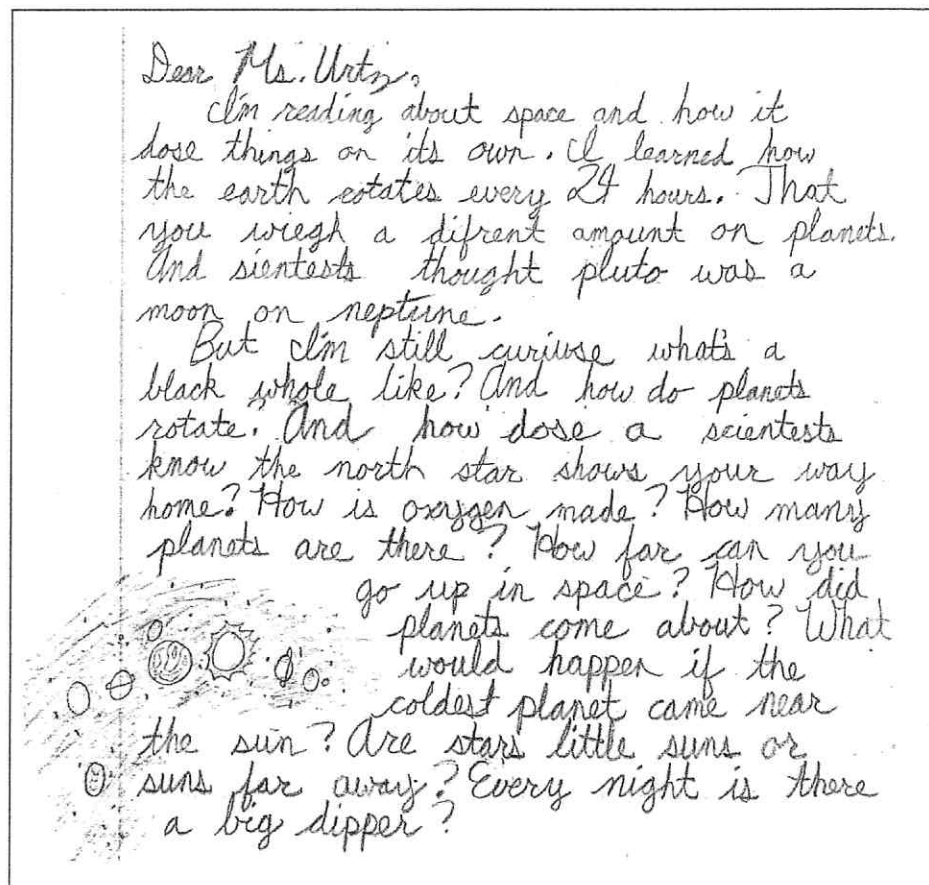 Dear Ms. Urtz,
I'm reading about space and how it
dose things on its own. I learned how
the earth rotates every 24 hours. That
you wiegh a difrent amount on planets.
And sientests thought pluto was a
moon on neptune.
But I'm still curiuse what's a
black whole like? And how do planets
rotate? And how dose a scientests
know the north star shows your way
home? How is oxygen made? How many
planets are there? How far can you
go up in space? How did
planets come about? What
would happen if the
coldest planet came near
the sun? Are stars little suns or
suns far away? Every night is there
a big dipper?